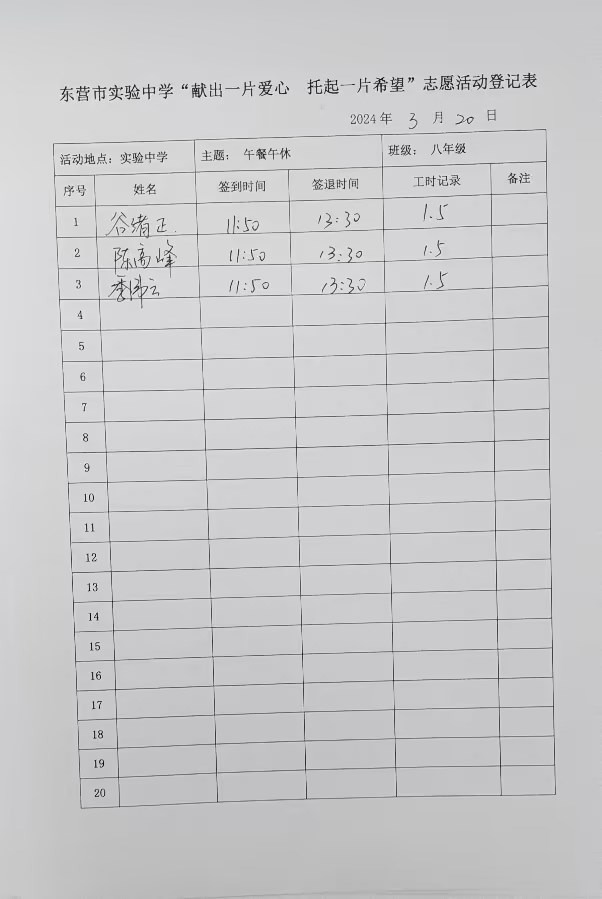 东营市实验中学“献出一片爱心 托起一片希望”志愿活动登记表
2024年 3 月 20 日
活动地点：实验中学 主题： 午餐午休 班级： 八年级
序号 姓名 签到时间 签退时间 工时记录 备注
1 谷绪正 11:50 13:30 1.5
2 陈高峰 11:50 13:30 1.5
3 11:50 13:30 1.5
4
5
6
7
8
9
10
11
12
13
14
15
16
17
18
19
20